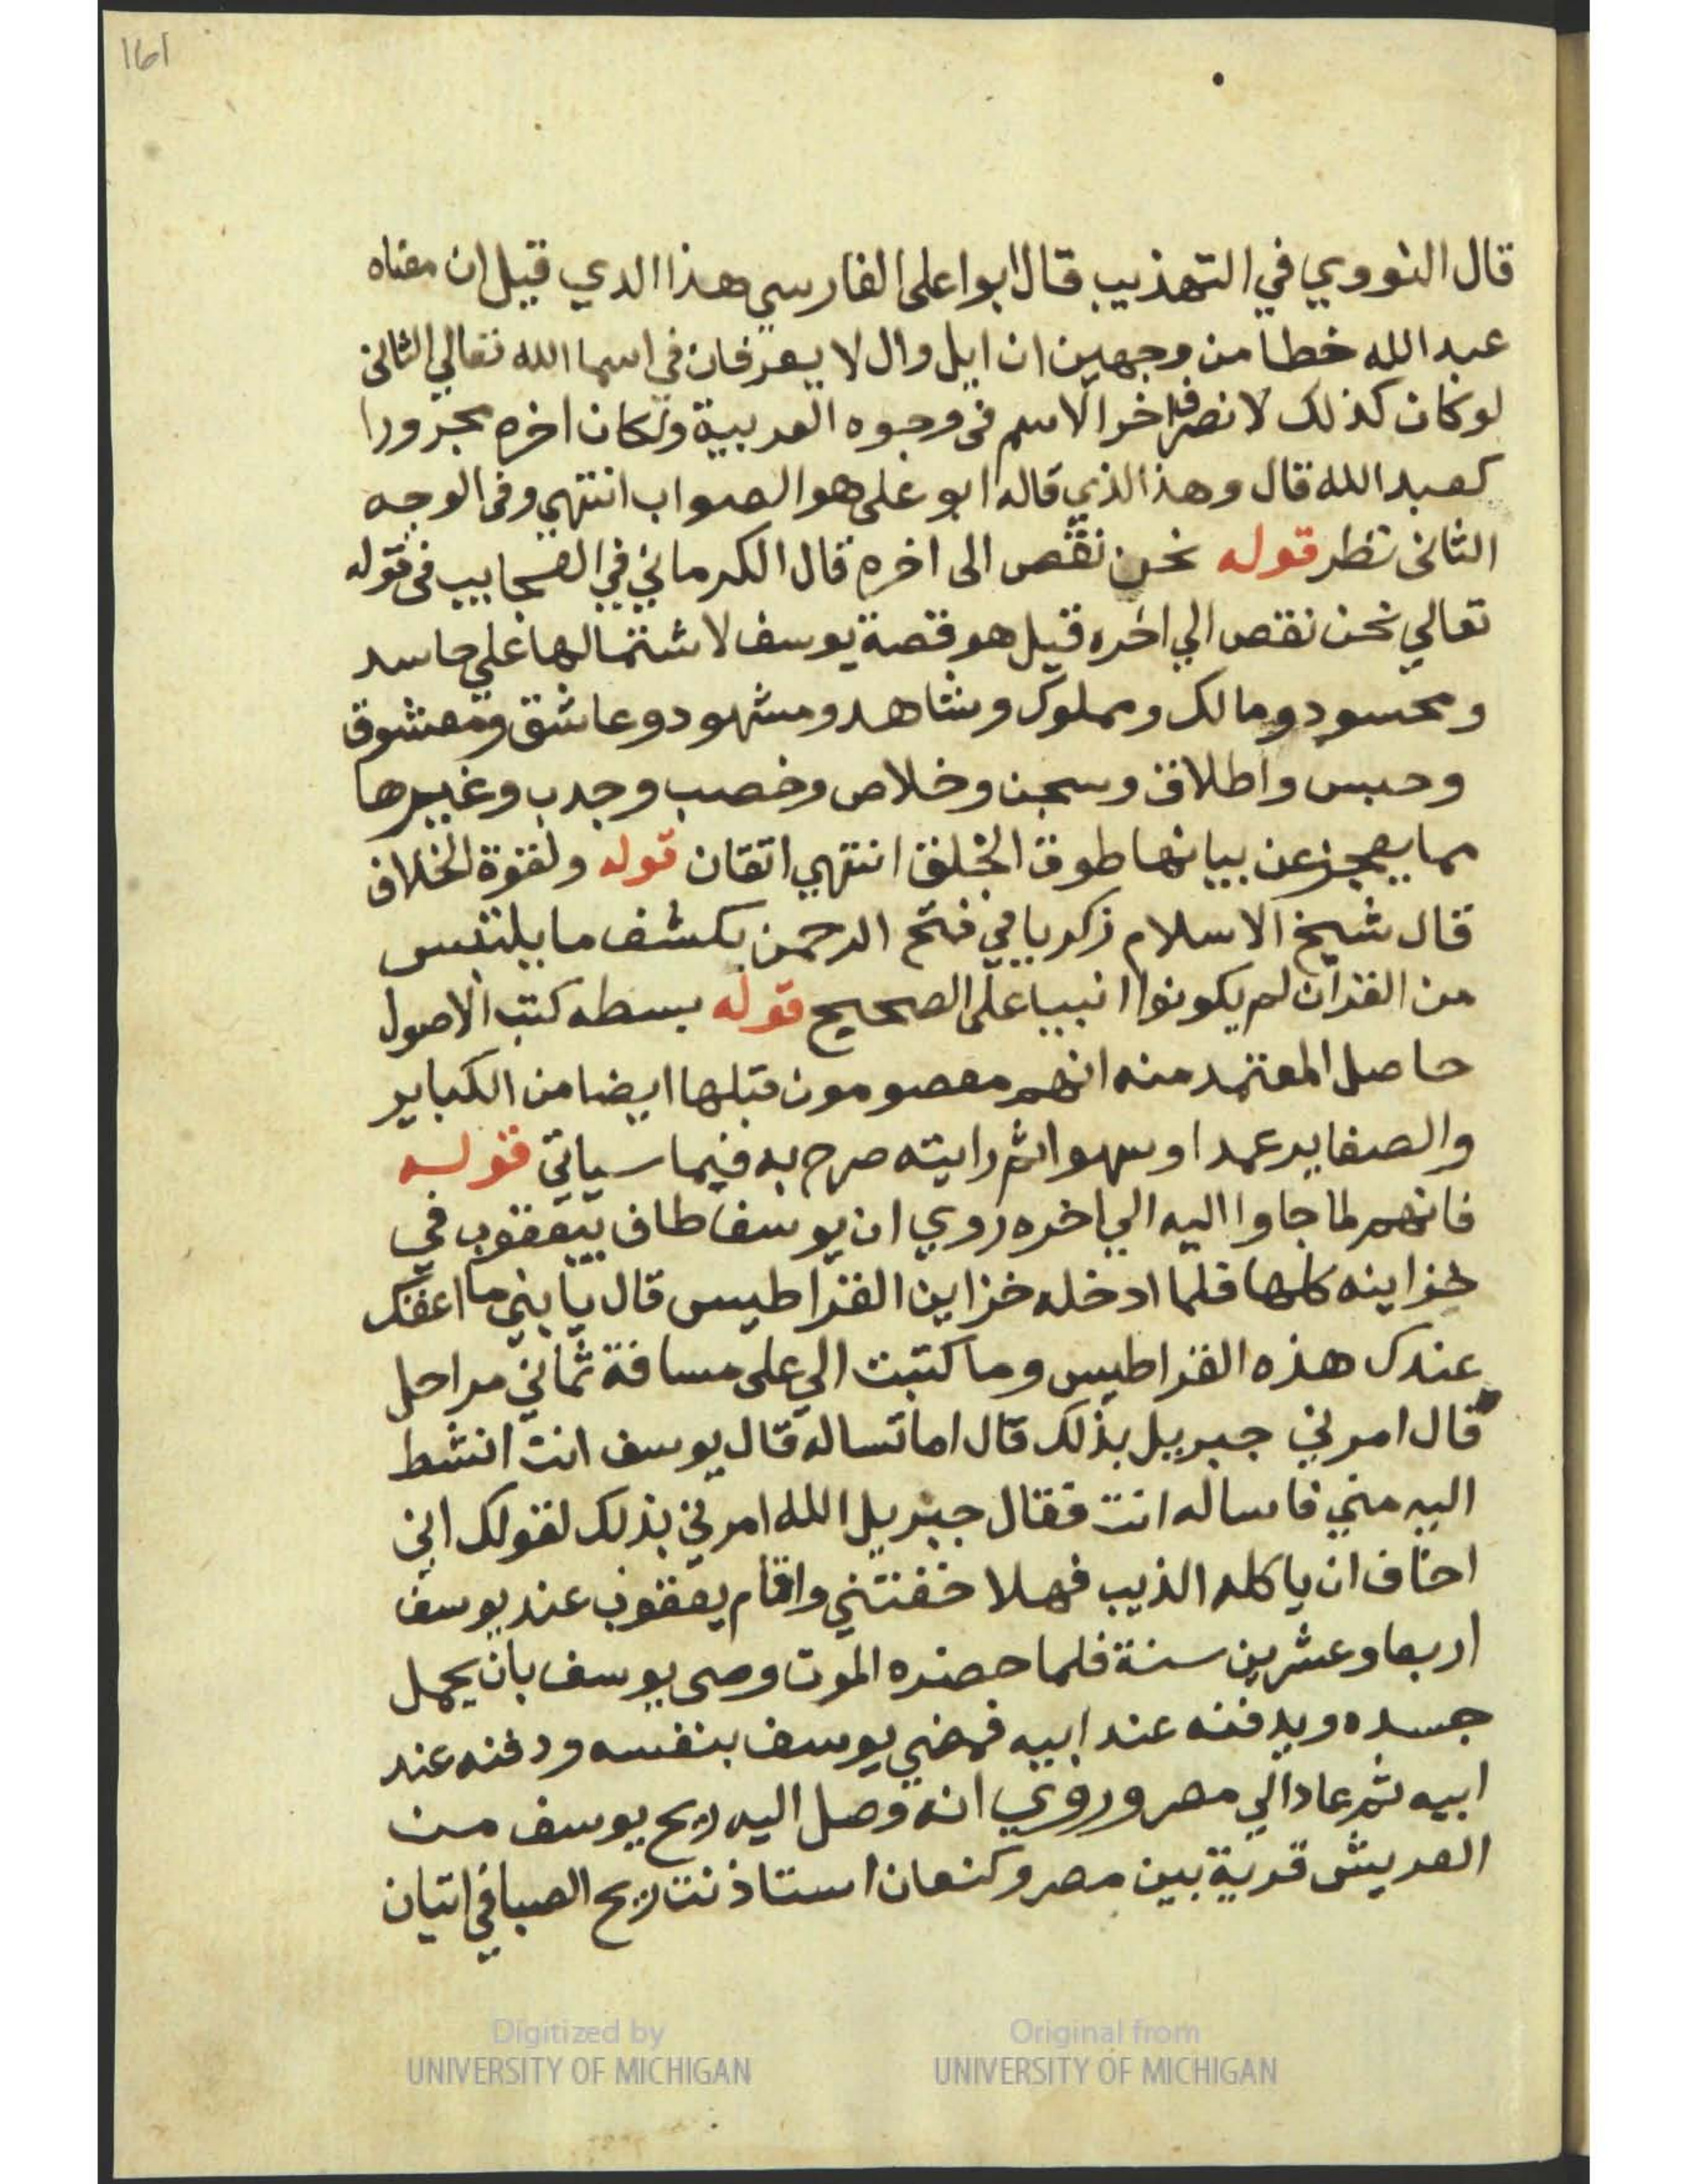 161
قال النووي في التهذيب قال ابوا على الفارسي هذا الدي قيل ان معناه
عبد الله خطا من وجهين ان ايل وال لا يعرفان في اسما الله تعالي الثانى
لو كان كذلك لانصرف اخر الاسم فى وجوه العربية ولكان اخره مجرورا
كعبد الله قال وهذا الذي قاله ابو على هو الصواب انتهي وفى الوجه
الثانى نظر قوله نحن نقص الى اخره قال الكرماني في العجايب فى قوله
تعالي نحن نقص الي اخره قيل هو قصة يوسف لاشتمالها علي حاسد
ومحسود ومالك ومملوك وشاهد ومشهود وعاشق ومعشوق
وحبس واطلاق وسجن وخلاص وخصب وجدب وغيرها
مما يعجز عن بيانها طوق الخلق انتهي اتقان قوله ولقوة الخلاف
قال شيخ الاسلام زكريا في فتح الرحمن بكشف ما يلتبس
من القران لم يكونوا انبيا على الصحيح قوله بسطه كتب الاصول
حاصل المعتمد منه انهم معصومون قبلها ايضا من الكباير
والصغاير عمدا او سهوا ثم رايته صرح به فيما سياتي قوله
فانهم لما جاوا اليه الي اخره روي ان يوسف طاف بيعقوب في
خزاينه كلها فلما ادخله خزاين القراطيس قال يا بني ما اعقك
عندك هذه القراطيس وما كتبت الي على مسافة ثماني مراحل
قال امرني جبريل بذلك قال اما تساله قال يوسف انت انشط
اليه مني فاساله انت فقال جبريل الله امرني بذلك لقولك اني
اخاف ان ياكله الذيب فهلا خفتني واقام يعقوب عند يوسف
اربعا وعشرين سنة فلما حضره الموت وصى يوسف بان يحمل
جسده ويدفنه عند ابيه فمضي يوسف بنفسه ودفنه عند
ابيه ثم عاد الي مصر وروي انه وصل اليه ريح يوسف من
العريش قرية بين مصر وكنعان استاذنت ريح الصبا في اتيان
Digitized by
UNIVERSITY OF MICHIGAN
Original from
UNIVERSITY OF MICHIGAN